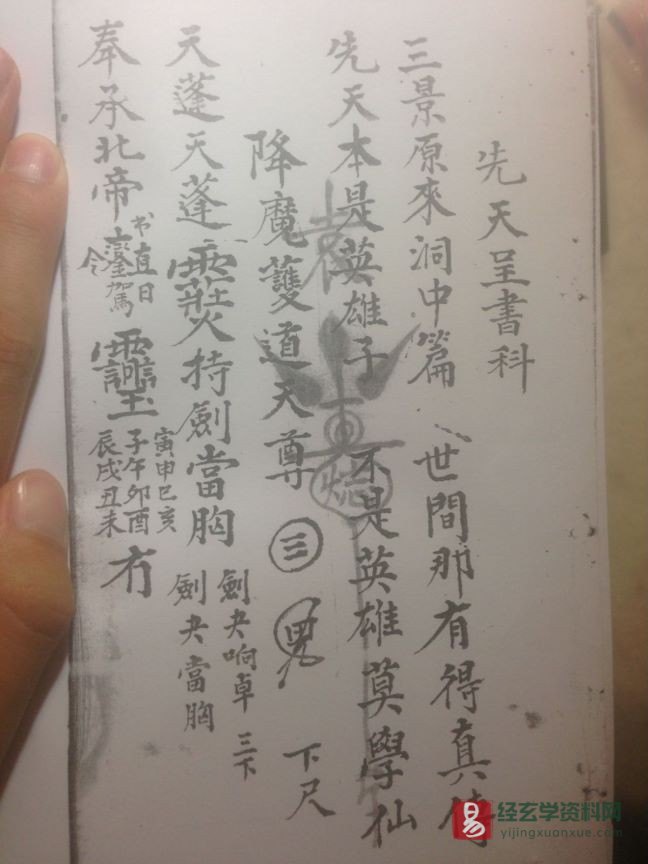 先天呈書科
三景原來洞中篇 世間那有得真傳
先天本是英雄子 不是英雄莫學仙
降魔護道天尊 三 下尺
天蓬天蓬 持劍當胸 劍夬响卓三下 劍夬當胸
奉承北帝 书直日 令 駕 寅申巳亥 子午卯酉 辰戌丑未
经玄学资料网
yijingxuonxue.com
易